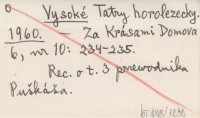 o Vysoké Tatry horolezecky.
1960. — Za Krásami Domova
6, nr 10: 234-235.
Rec. o t. 3 przewodnika
Puškáša.